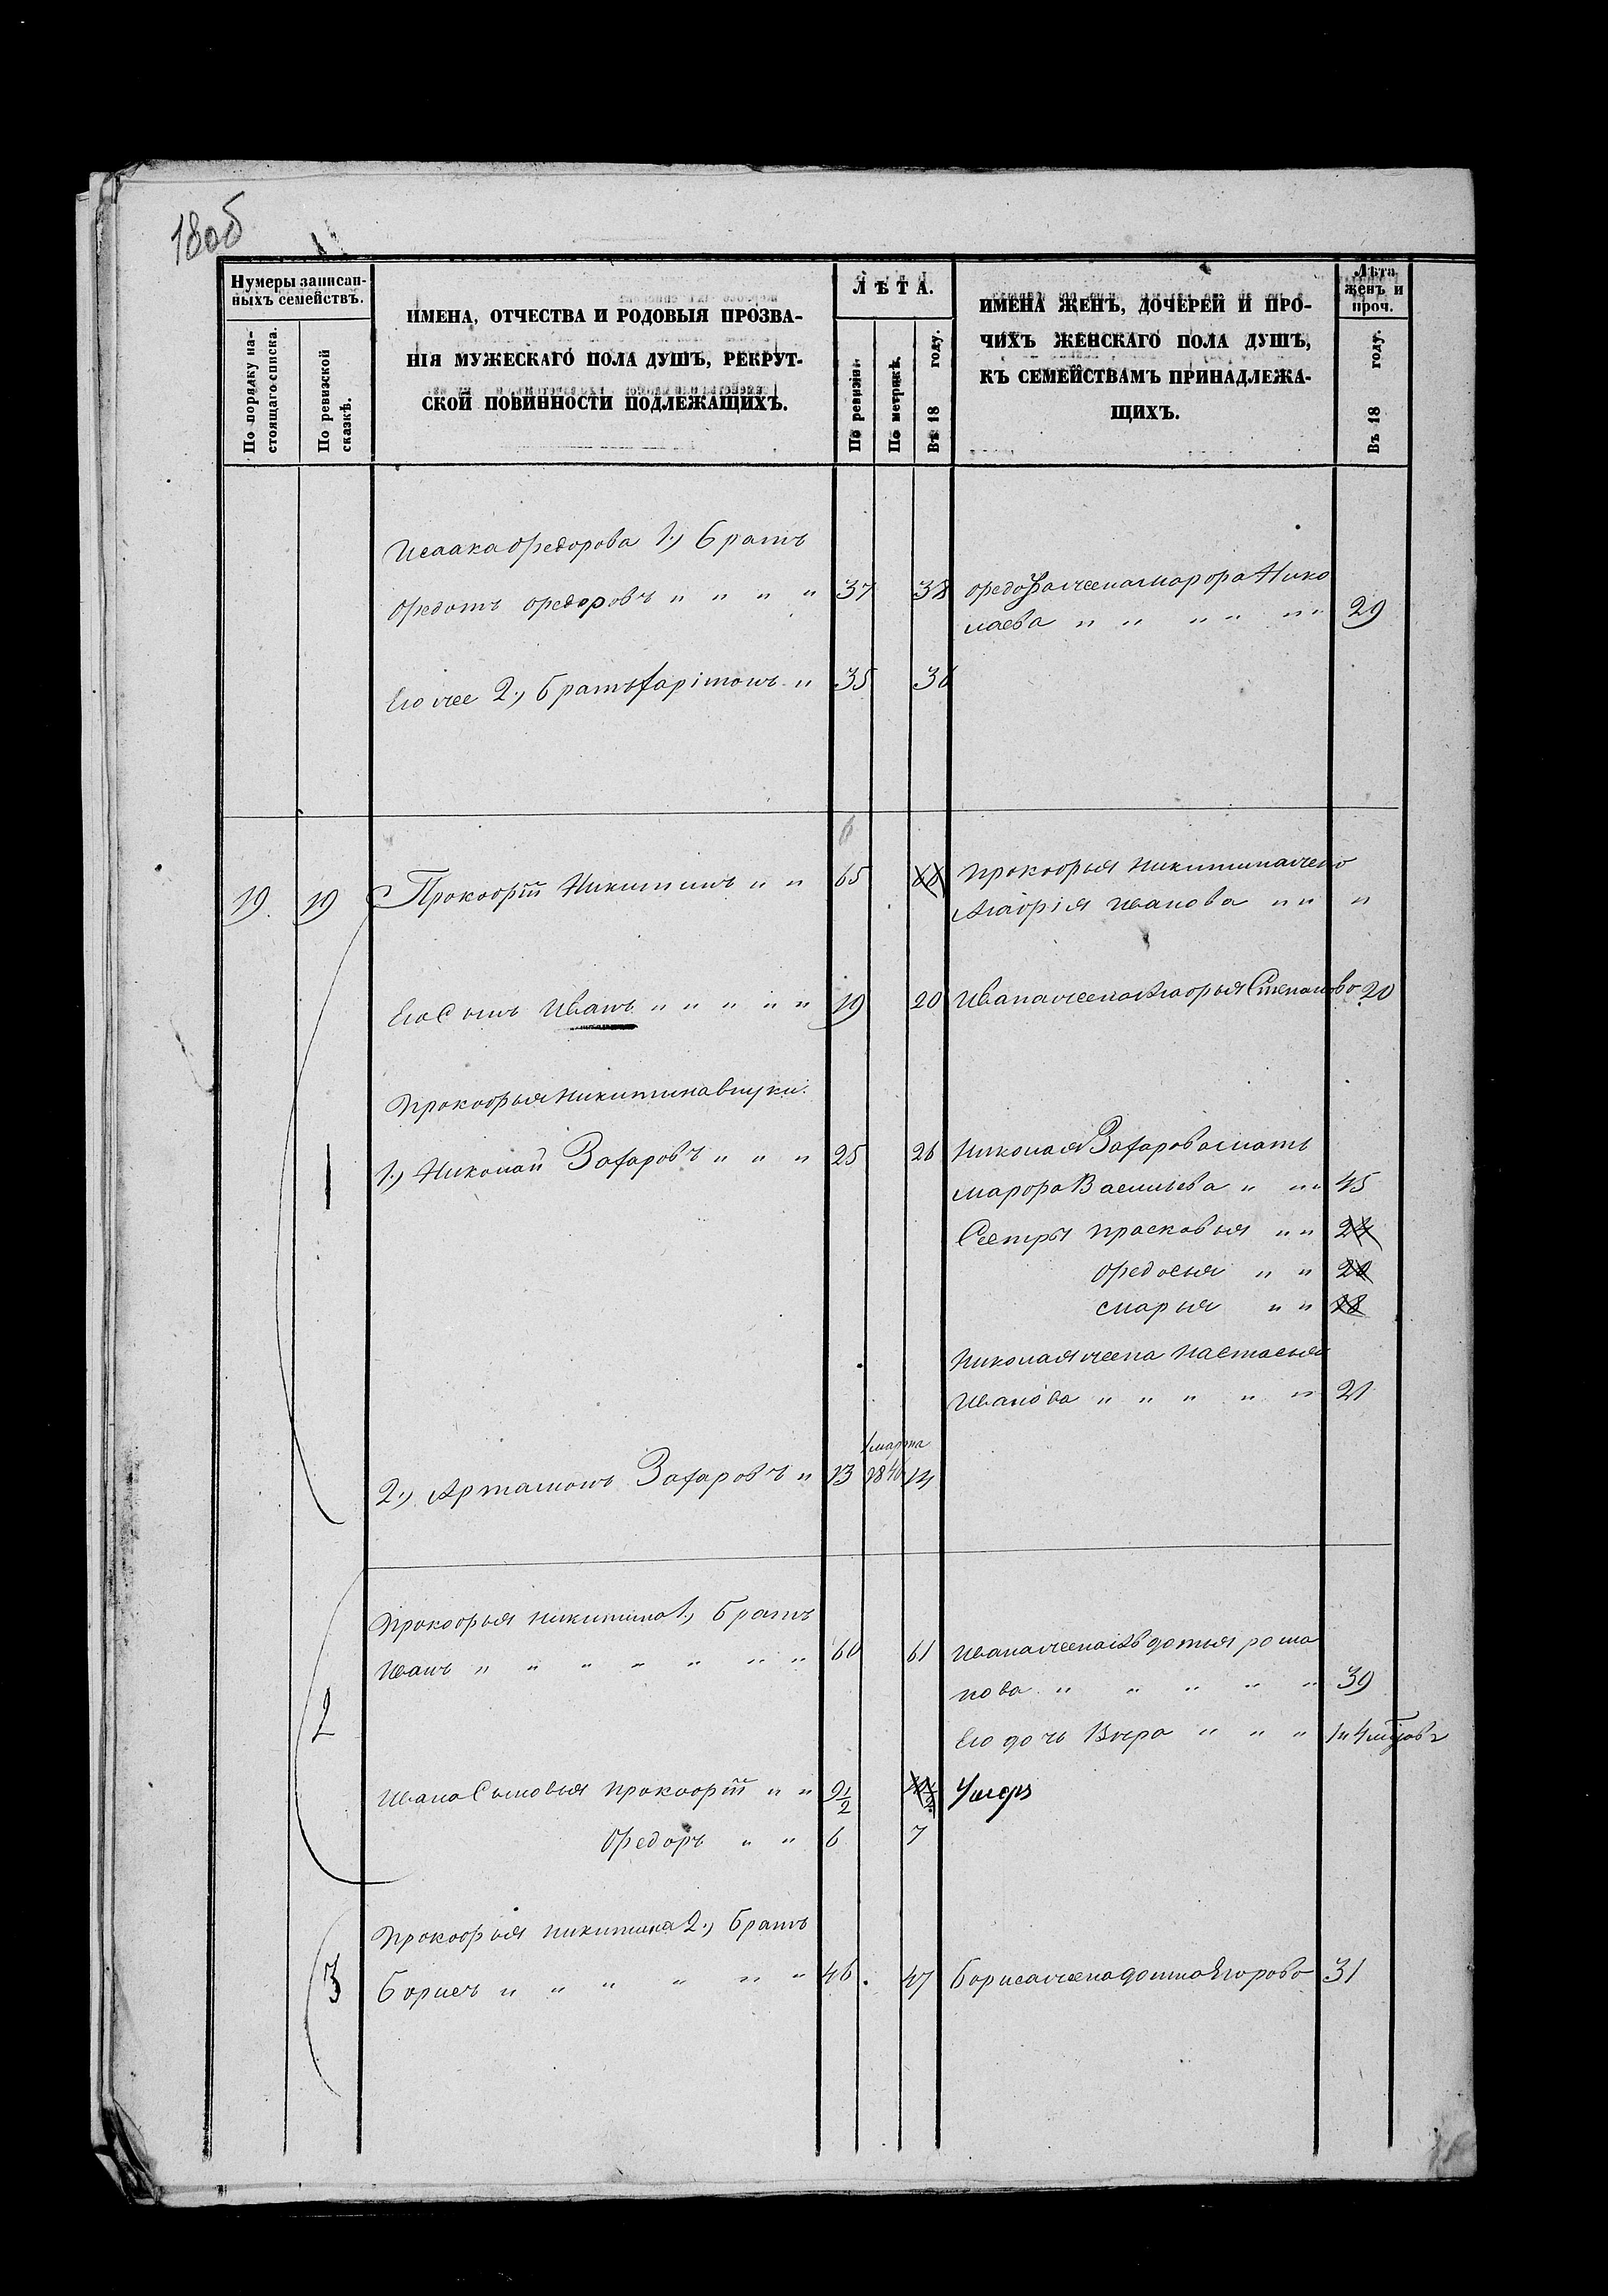 18об
Нумеры записан-
ныхъ семействъ.
По порядку на-
стоящаго списка.
По ревизской
сказкѣ.
ИМЕНА, ОТЧЕСТВА И РОДОВЫЯ ПРОЗВА-
НІЯ МУЖЕСКАГО ПОЛА ДУШЪ, РЕКРУТ-
СКОЙ ПОВИННОСТИ ПОДЛЕЖАЩИХЪ.
ЛѢТА.
По ревизіи.
По метрикѣ.
Въ 18 году.
ИМЕНА ЖЕНЪ, ДОЧЕРЕЙ И ПРО-
ЧИХЪ ЖЕНСКАГО ПОЛА ДУШЪ,
КЪ СЕМЕЙСТВАМЪ ПРИНАДЛЕЖА-
ЩИХЪ.
Лѣта
женъ и
проч.
Въ 18 году.
Исаака Федорова 1., братъ
Федотъ Федоровъ " " " " 37 38 Федота жена Марфа Нико
лаева " " " " " " 29
Его же 2., братъ Харітонъ " 35 36
6
19. 19 Прокофій Никитинъ " " 65 66 Прокофья Никитина жена
Агафія Иванова " " "
Его Сынъ Иванъ " " " " " 19 20 Ивана жена Агафья Степанова 20
Прокофья Никитина внуки.
1 1.) Николай Захаровъ " " " 25 26 Николая Захарова мать
Марфа Васильева " " " 45
Сестры Прасковья " " 24
Федосья " " 20
Марья " " 18
Николая жена Настасья
Иванова " " " " " 21
1 марта
2., Артамонъ Захаровъ " 13 1840 14
Прокофья Никитина 1., братъ
Иванъ " " " " " " " 60 61 Ивана жена Авдотья Рома
нова " " " " " 39
2 Его дочь Вѣра " " "
Ивана Сыновья Прокофій " " 9½ 10½ Умеръ
Федоръ " " 6 7
Прокофья Никитина 2., братъ
3 Борисъ " " " " " " 46. 47 Бориса жена Домна Егорова 31